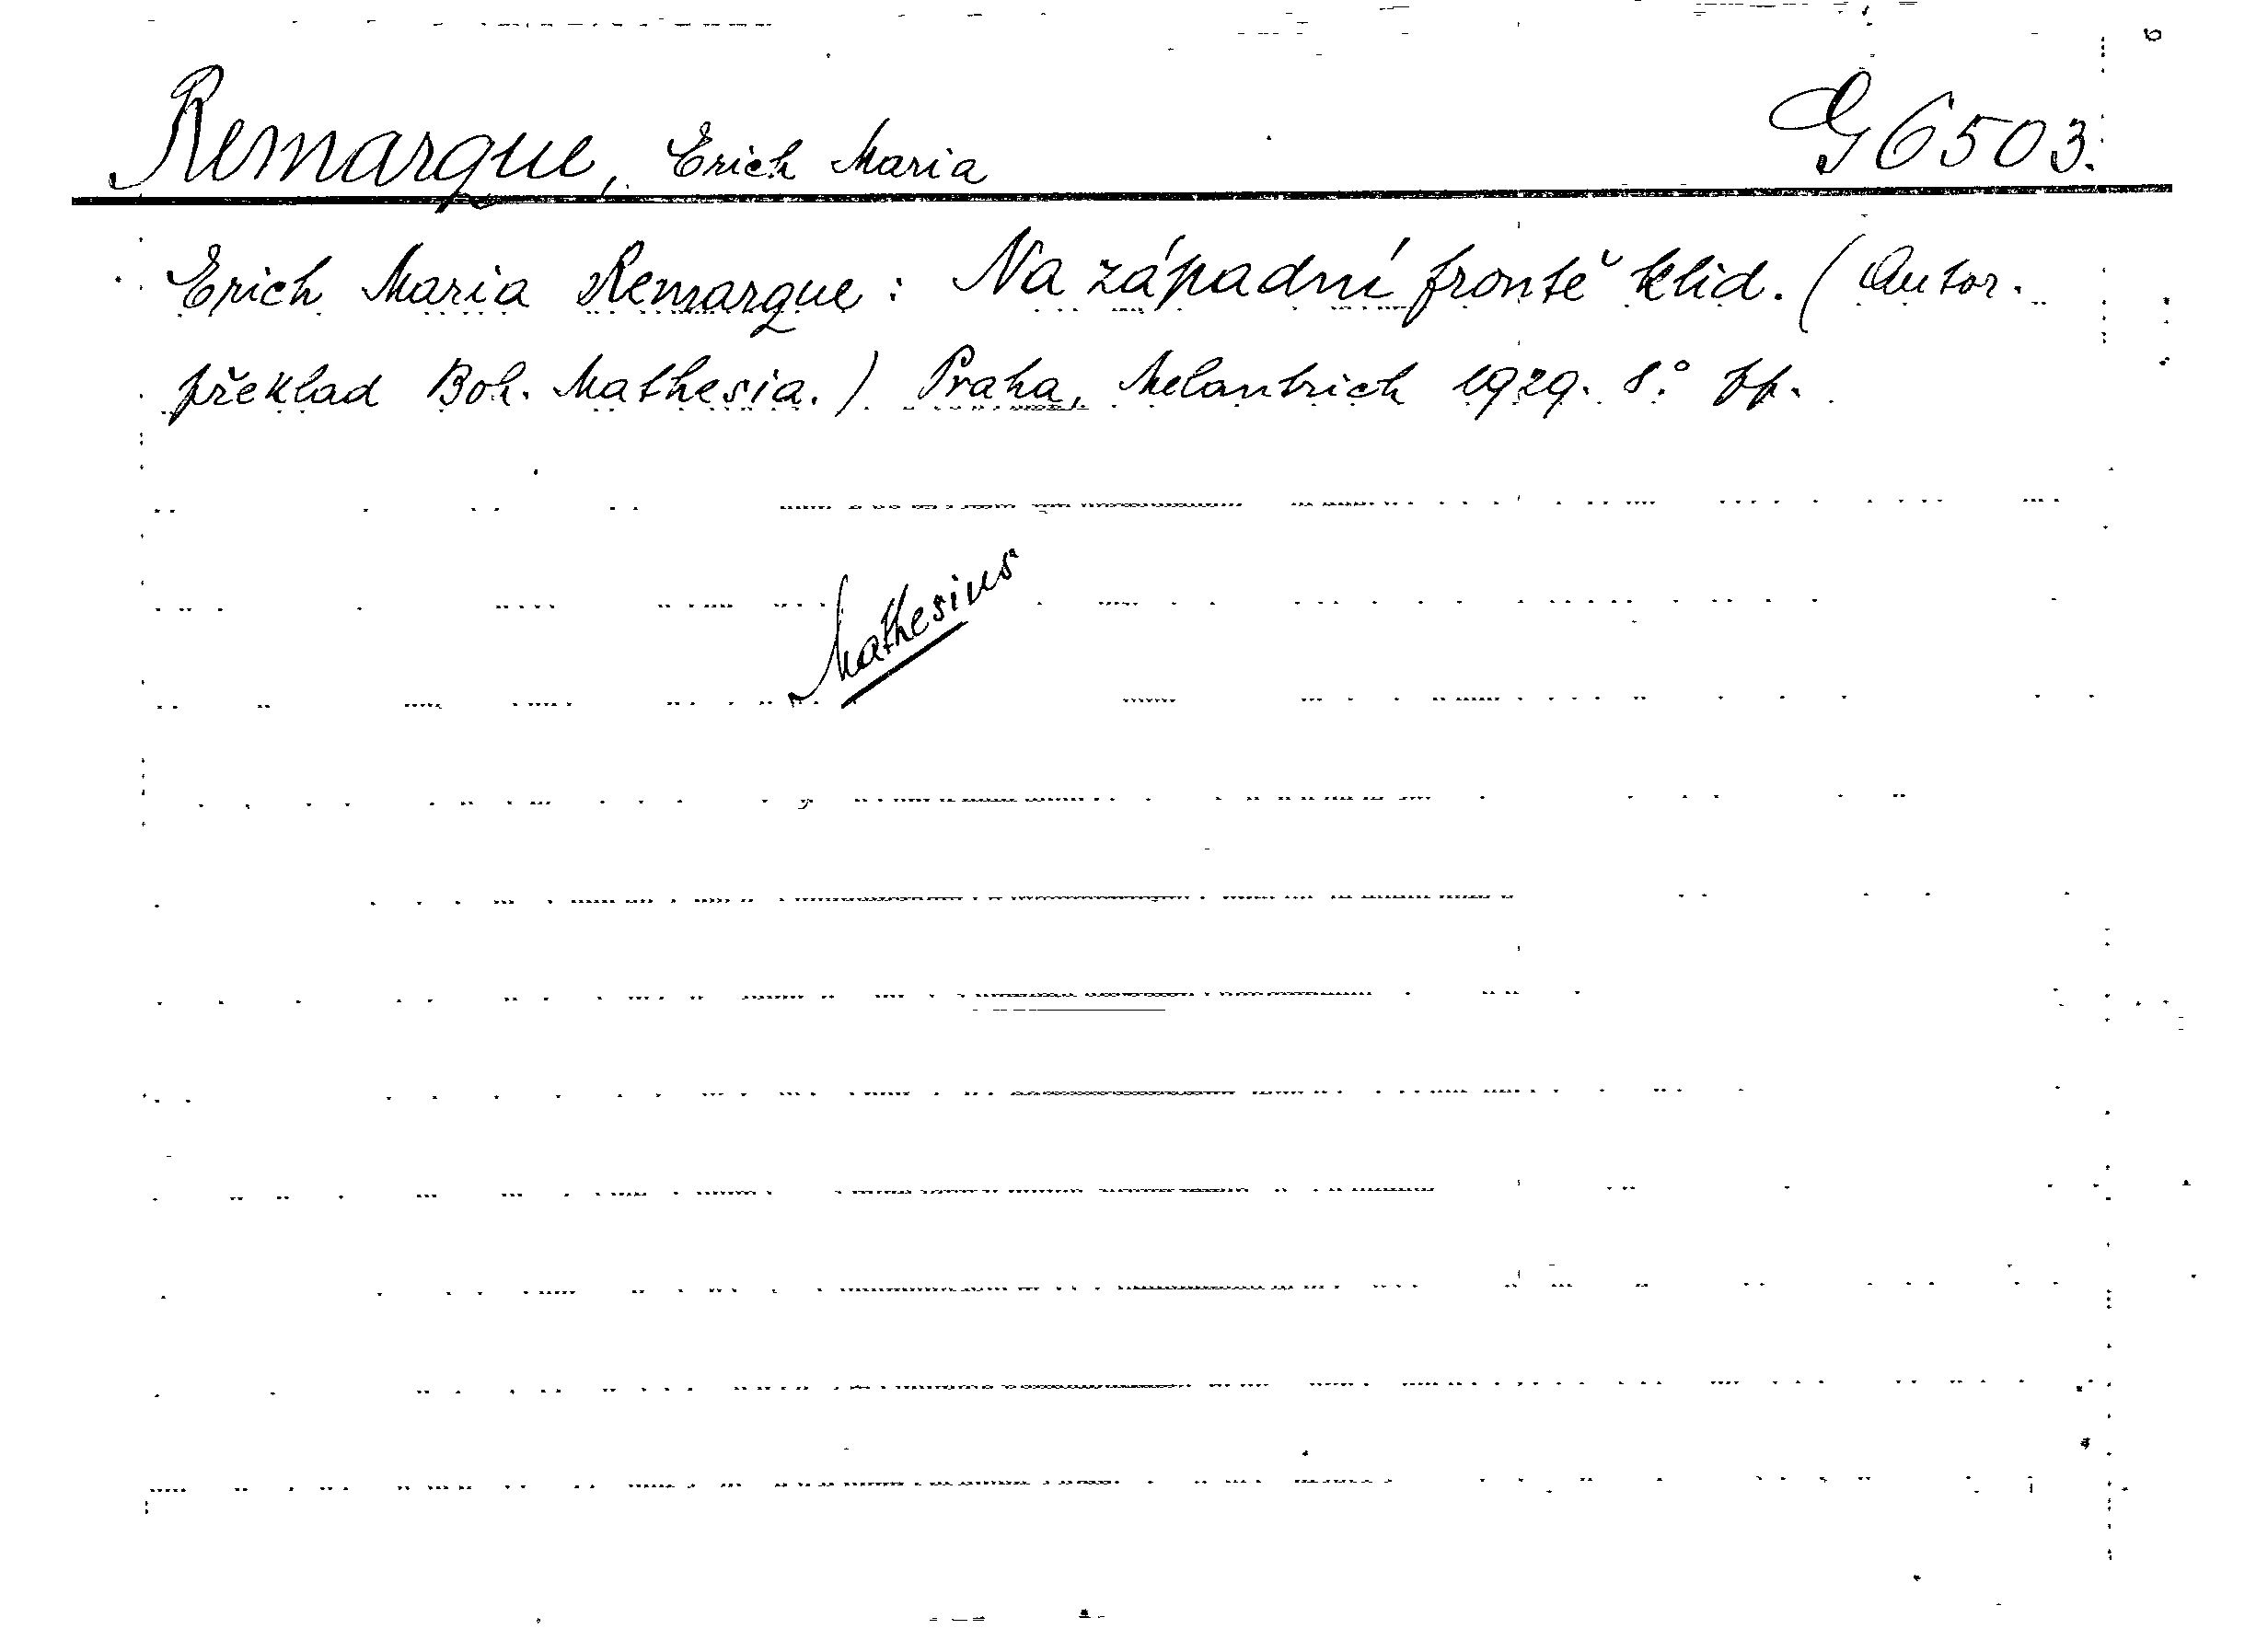 Remarque, Erich Maria G 6503.
Erich Maria Remarque: Na západní frontě klid. (Autor.
překlad Boh. Mathesia.) Praha, Melantrich 1929. 8.°
Mathesius